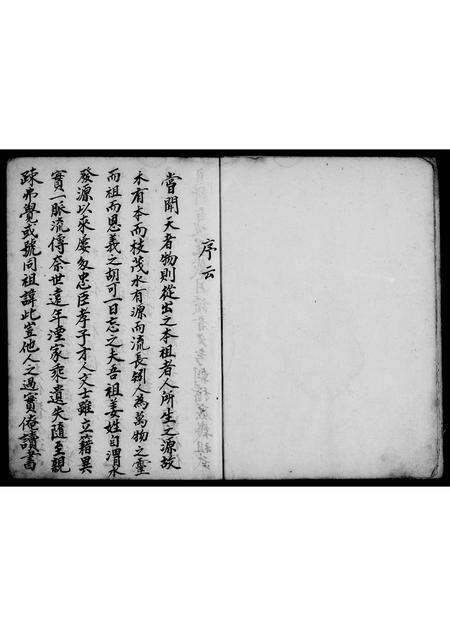 序云
當聞天者物則從出之本祖者人所生之源故
木有本而枝茂水有源而流長矧人為萬物之靈
而祖而恩義之胡可一日忘之夫吾祖姜姓自渭水
發源以來屡多忠臣孝子才人文士雖立籍異
實一脈流傳奈世遠年湮家乘遺失隨至親
疎弗覺或號同祖諱此豈他人之過實俺讀書